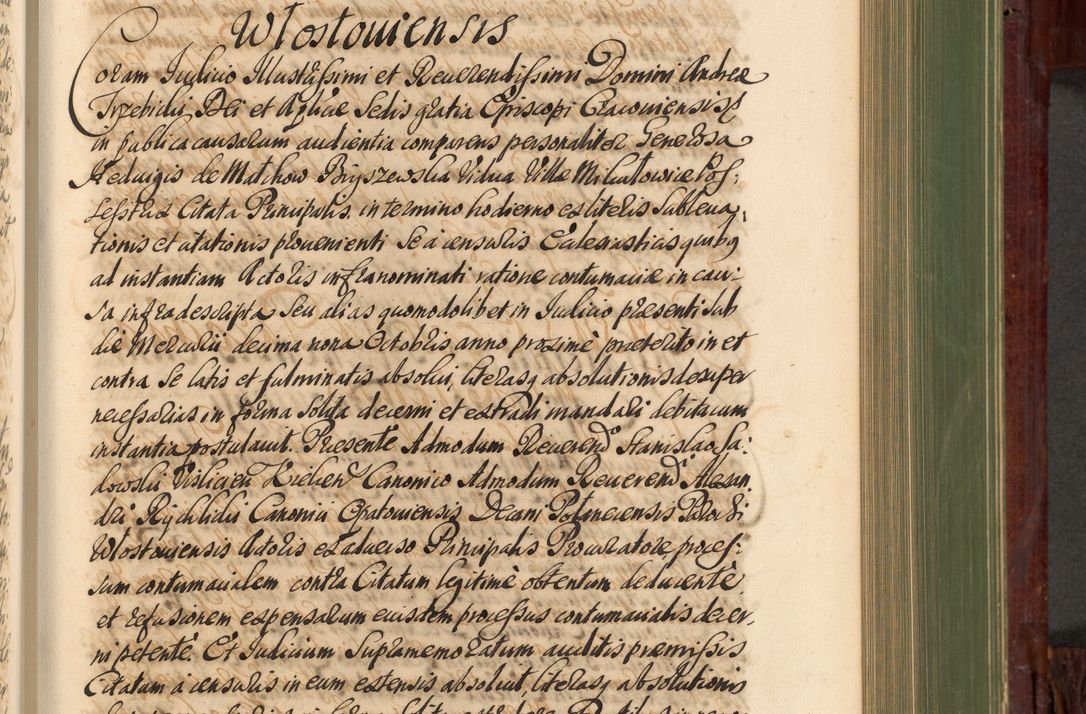 Wlostouiensis
Coram Iudicio Illustrissimi et Reuerendissimi Domini Andreæ
Trzebicki Dei et Aplicæ Sedis gratia Episcopi Cracouiensis
in publica causarum audientia comparens personaliter Generosa
Heduigis de Malchow Bryszewska Vidua Villæ Mikulowice Pos:
sestrix Citata Principalis in termino hodierno ex literis Subleua:
tionis et citationis prouenienti Se à censuris Ecclesiasticis quibq
ad instantiam Actoris infranominati ratione contumaciæ in cau:
sa infra descripta Seu alias quomodolibet in Iudicio præsenti Sub
die Mercurii decima nona Octobris anno proximè præterito in et
contra Se latis et fulminatis absolui, literasq absolutionis desuper
necessarias in forma Solita decerni et extradi mandari debita cum
instantia postulauit. Præsente Admodum Reuerend Stanislao Sa:
dowski Vislicien Kielcen Canonico Admodum Reuerend Alexan
dri Rychlicki Canonici Opatouiensis Decani Polanecensis Parochi
Wlostouiensis Actoris ex aduerso Principalis Procuratore proces:
sum contumacialem contra Citatam legitimè obtentum deducente,
et refusionem expensarum eiusdem processus contumacialis decer,
ni petente. Et Iudicium Supramemoratum auditis præmissis
Citatam à censuris in eum extensis absoluit, literasq absolutionis